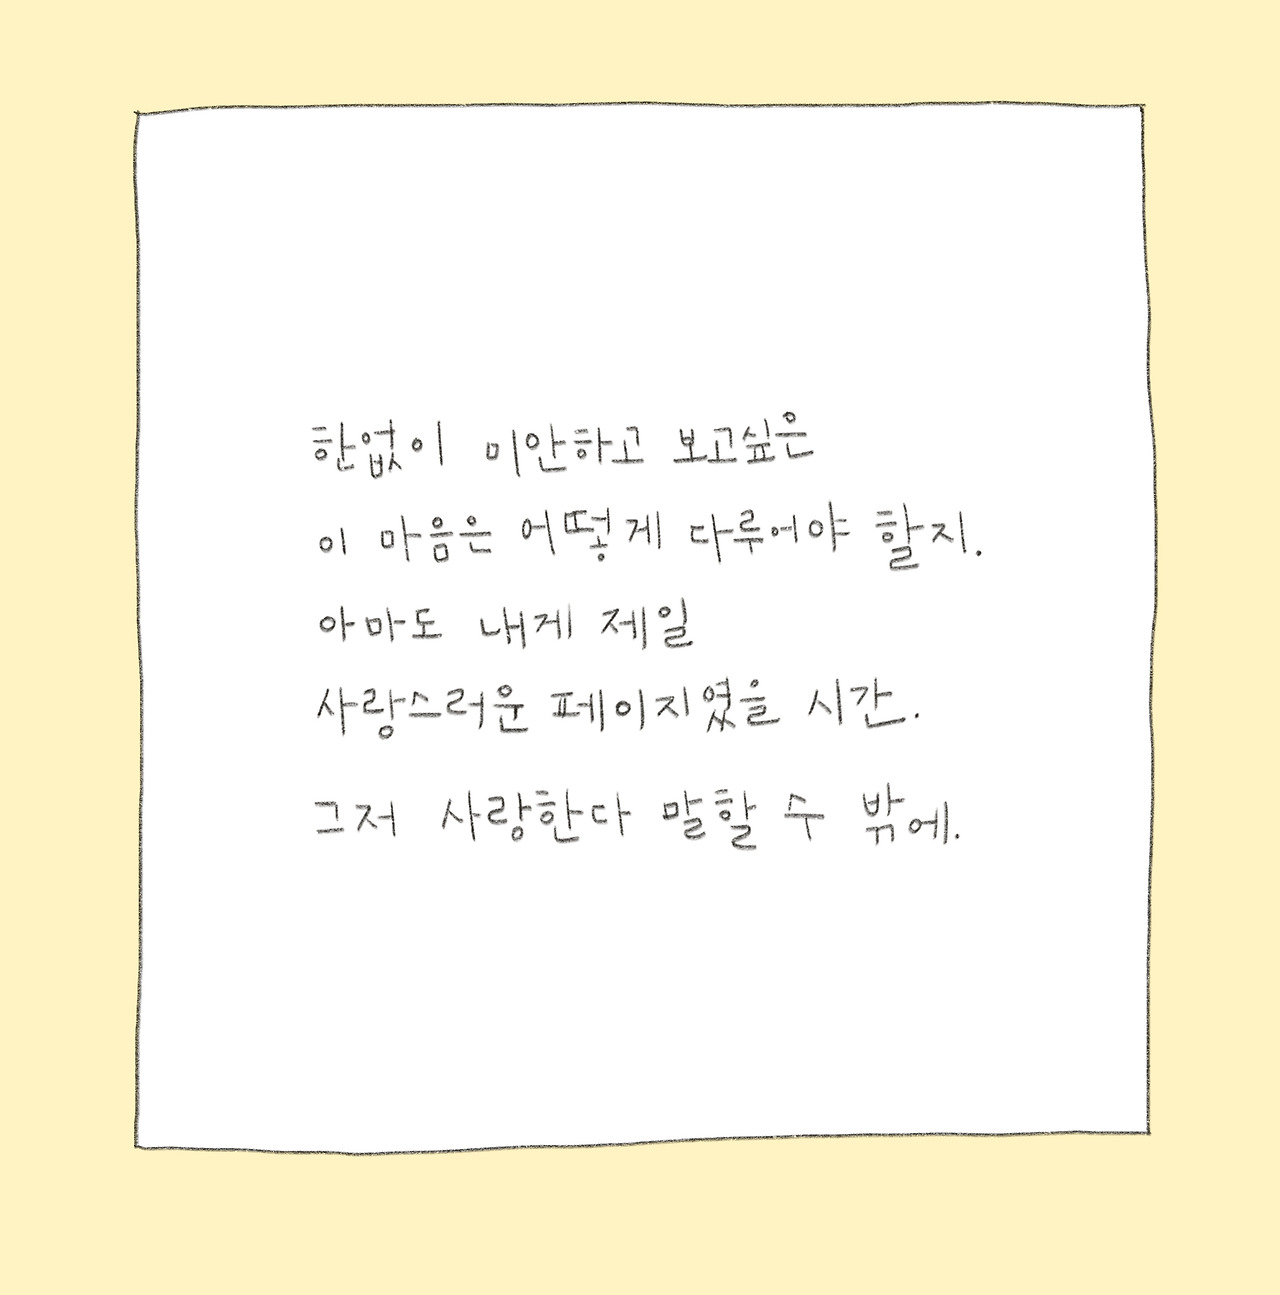 한없이 미안하고 보고싶은
이 마음은 어떻게 다루어야 할지.
아마도 내게 제일
사랑스러운 페이지였을 시간.
그저 사랑한다 말할 수 밖에.